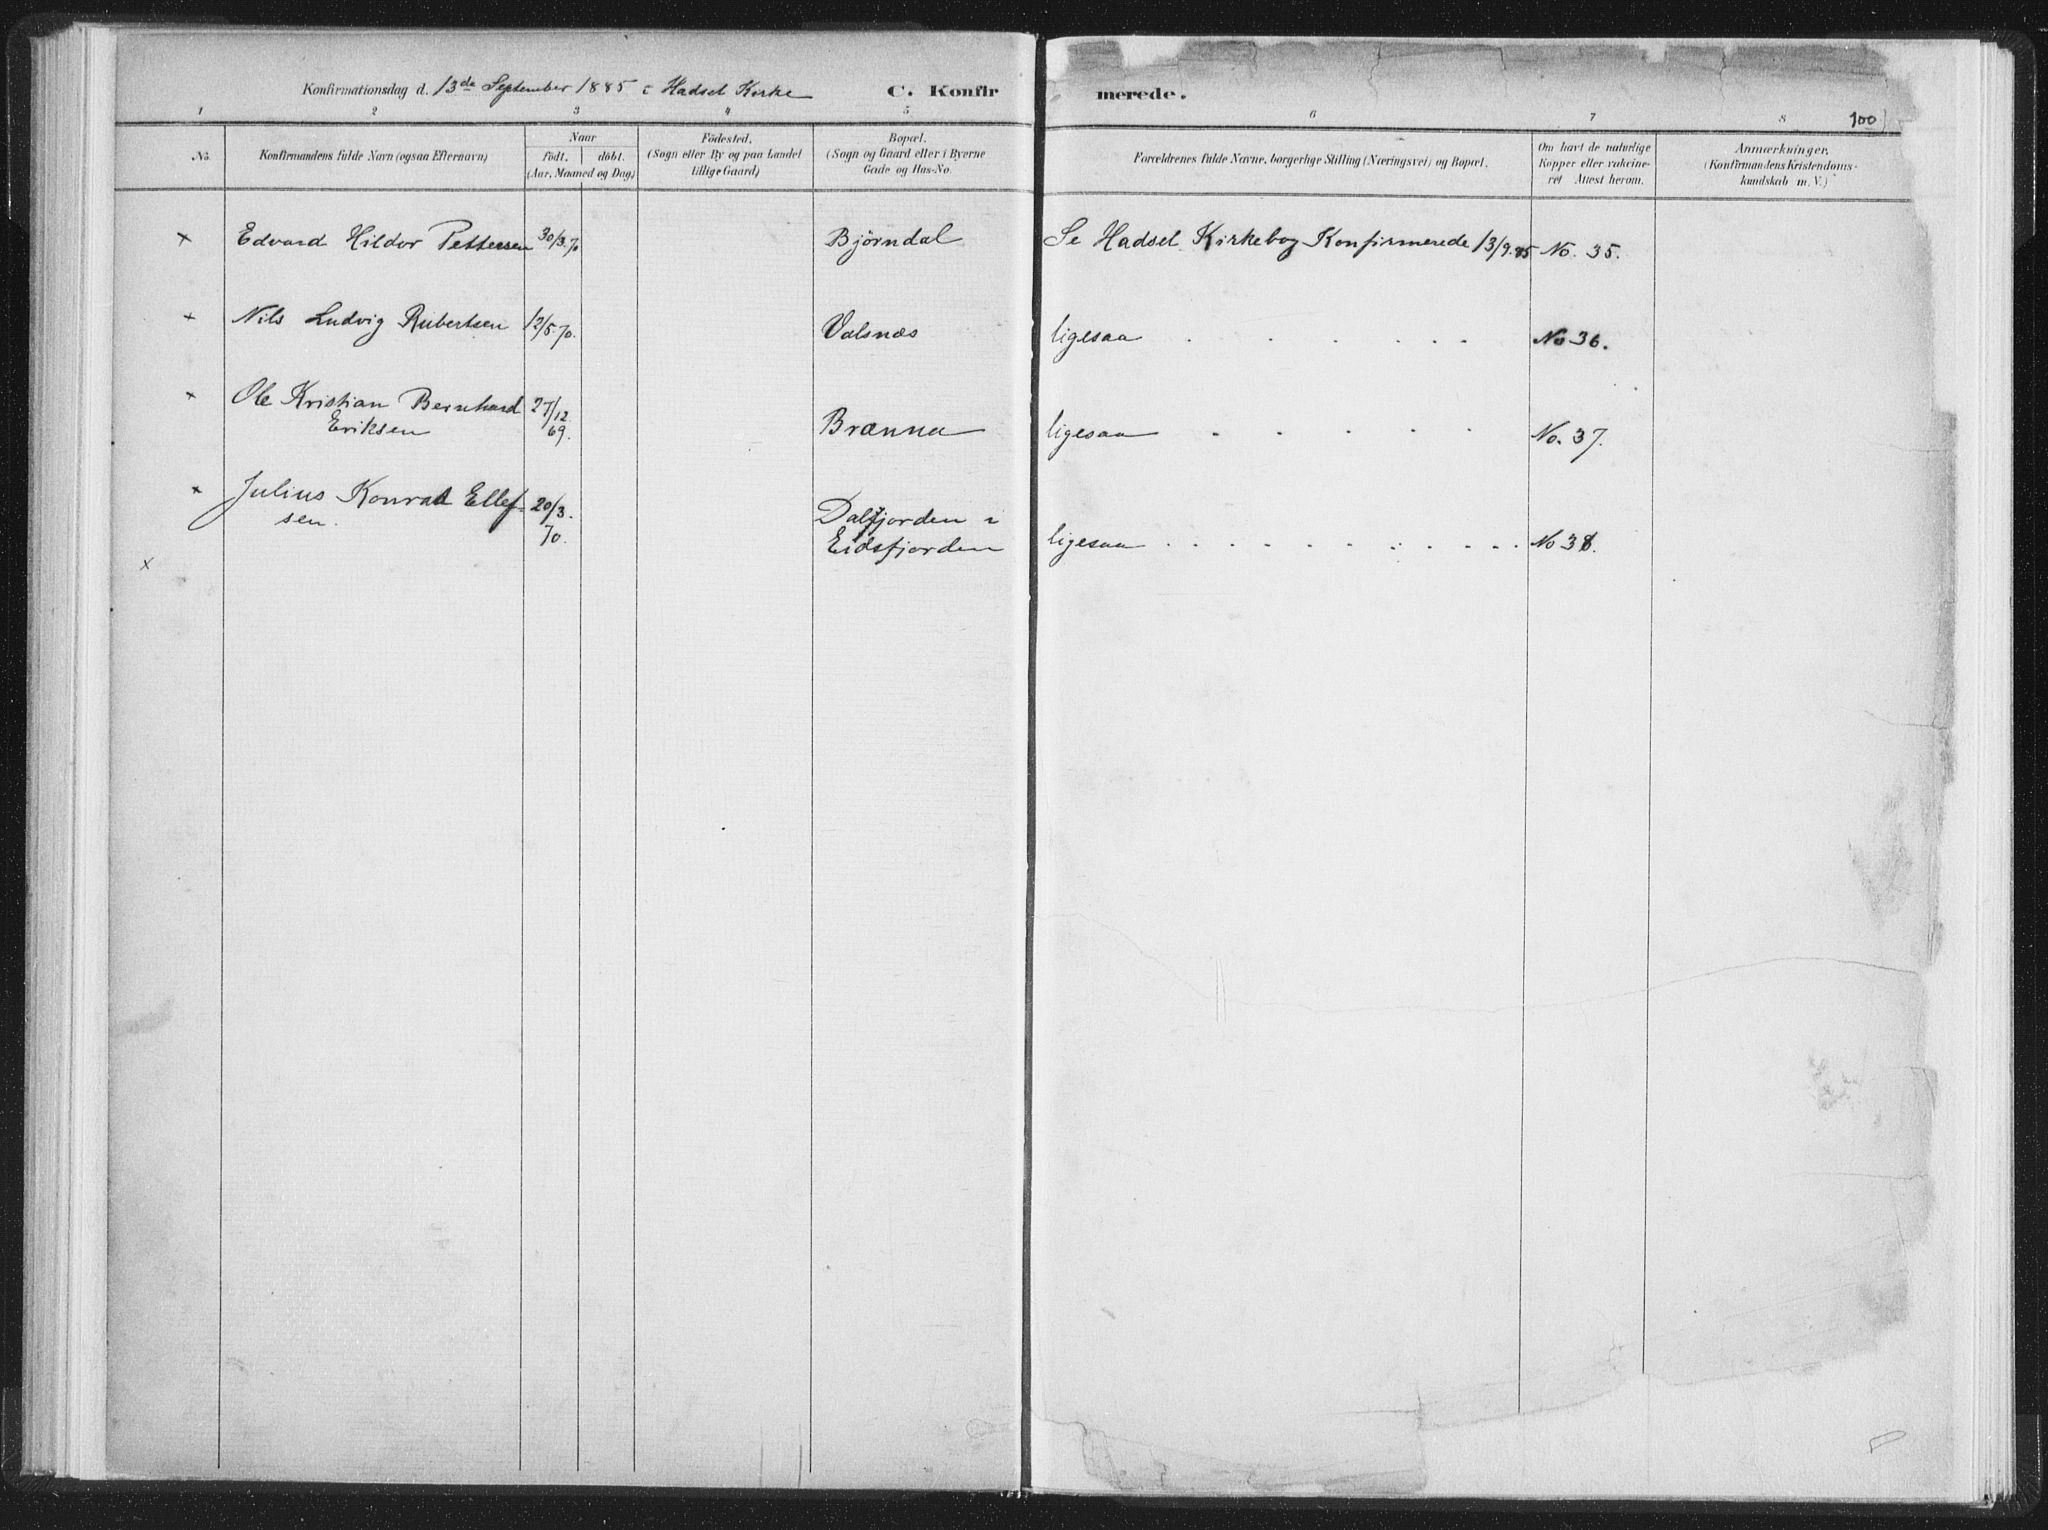 Konfirmationsdag d. 13de September 1885 i Hadsel Kirke C. Konfir merede.
1 2 3 4 5 6 7 8 100
No. Konfirmandens fulde Navn (ogsaa Efternavn)
Naar
födt. döbt.
(Aar, Maaned og Dag)
Födested.
(Sogn eller By og paa Landet
tillige Gaard)
Bopæl.
(Sogn og Gaard eller i Byerne
Gade og Hus-No.
Forældrenes fulde Navne, borgerlige Stilling (Næringsvei) og Bopæl.
Om havt de naturlige
Kopper eller vakcine-
ret Attest herom.
Anmærkninger.
(Konfirmandens Kristendoms-
kundskab m. V.)
x Edvard Hildor Pettersen 30/3.70 Björndal Se Hadsel Kirkebog Konfirmerede 13/9.85 No. 35.
x Nils Ludvig Rubertsen 12/5.70. Valsnæs ligesaa . . . . . . No 36.
x Ole Kristian Bernhard 27/12
Eriksen 69. Brænna ligesaa . . . . . No. 37.
x Julius Konrad Ellef- 20/3. Dalfjorden i
sen. 70. Eidsfjorden ligesaa . . . . . . . . . No 38.
x